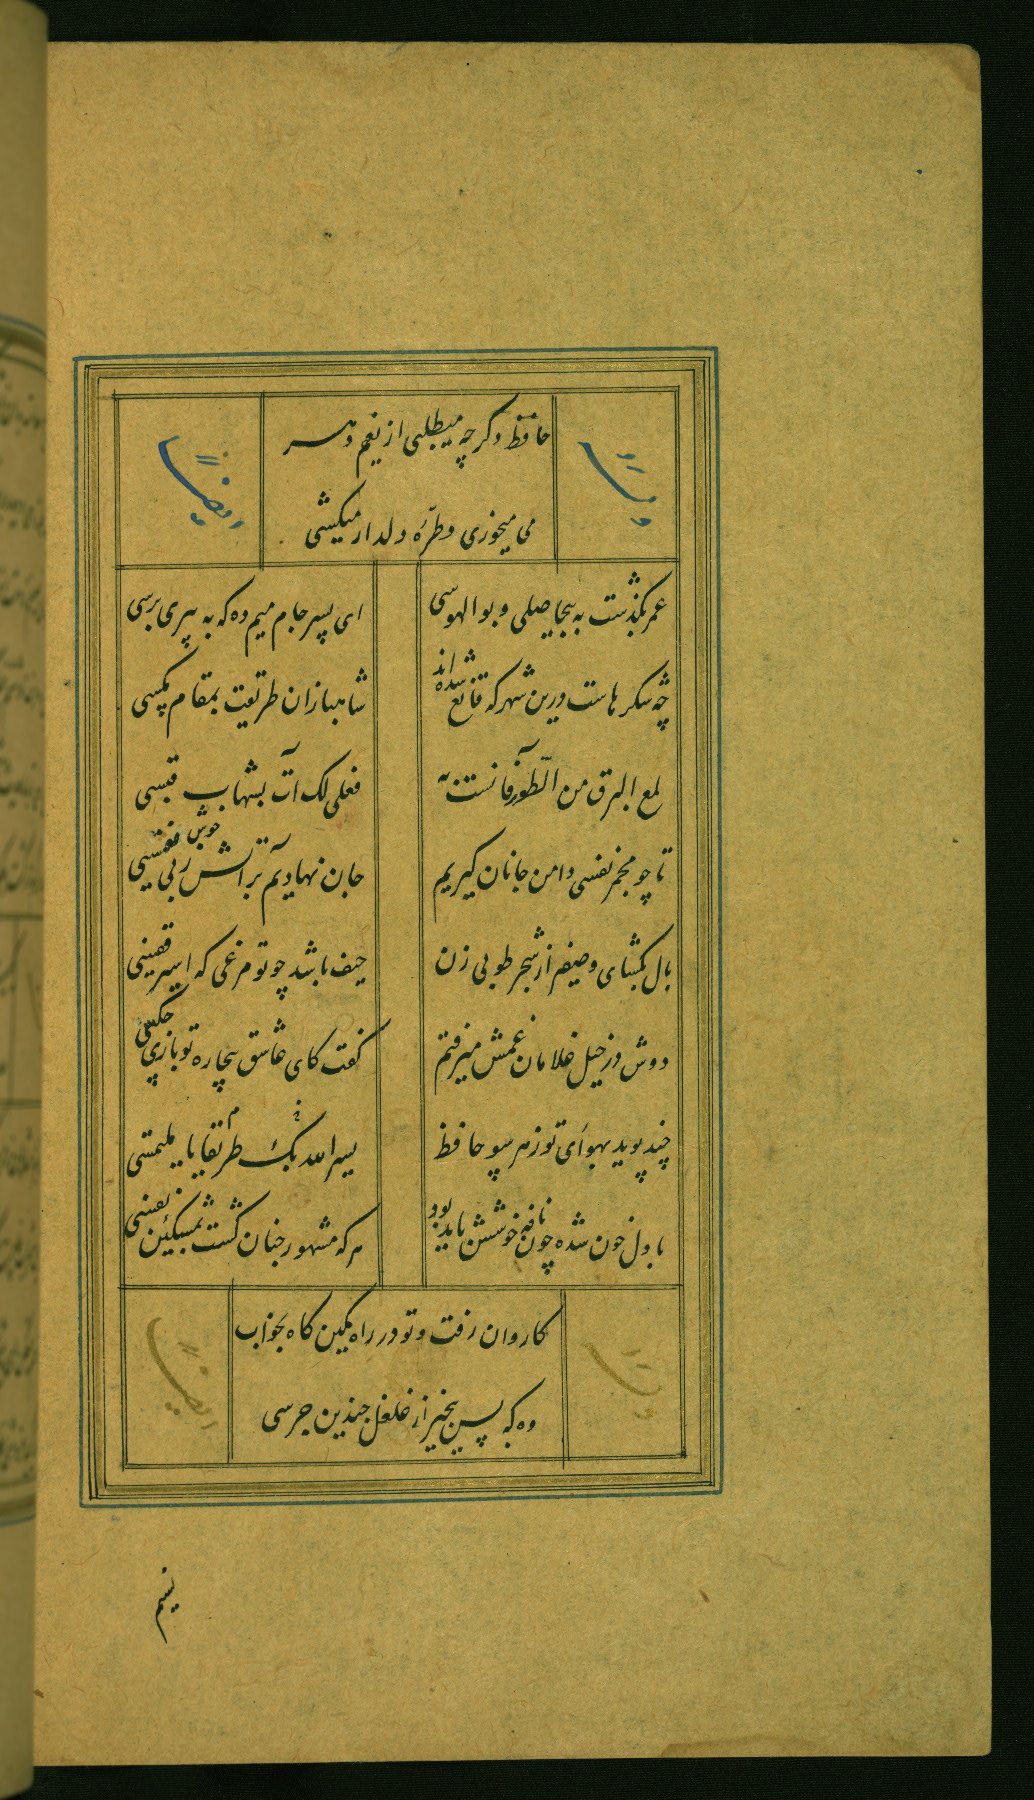 حافظ دگر چه میطلبی از نعیم دهر
می میخوری و طرّه دلدار میکشی
وله
ایضاً
عمر بگذشت به بیحاصلی و بوالهوسی
ای پسر جام میم ده که به پیری برسی
چه شکرهاست درین شهر که قانع شده اند
شاهبازان طریقت بمقام مکسی
لمع البرق من الطور فآنست به
فعلی لک آت بشهاب قبسی
تا چو مجمر نفسی دامن جانان گیریم
جان نهادیم بر آتش ز پی خوش نفسی
بال بکشای و صفیر از شجر طوبی زن
حیف باشد چو تو مرغی که اسیر قفسی
دوش در خیل غلامان غمش میرفتم
گفت کای عاشق بیچاره تو باری چکسی
چند پوید بهوای تو ز هر سو حافظ
یسر الله بک طریقا یا ملتمسی
با دل خون شده چون نافه خوشش باید بود
هر که مشهور جهان گشت بمشکین نفسی
کاروان رفت و تو در راه کمین گاه بخواب
وه که بس بیخبر از غلغل چندین جرسی
ایضاً
نسیم